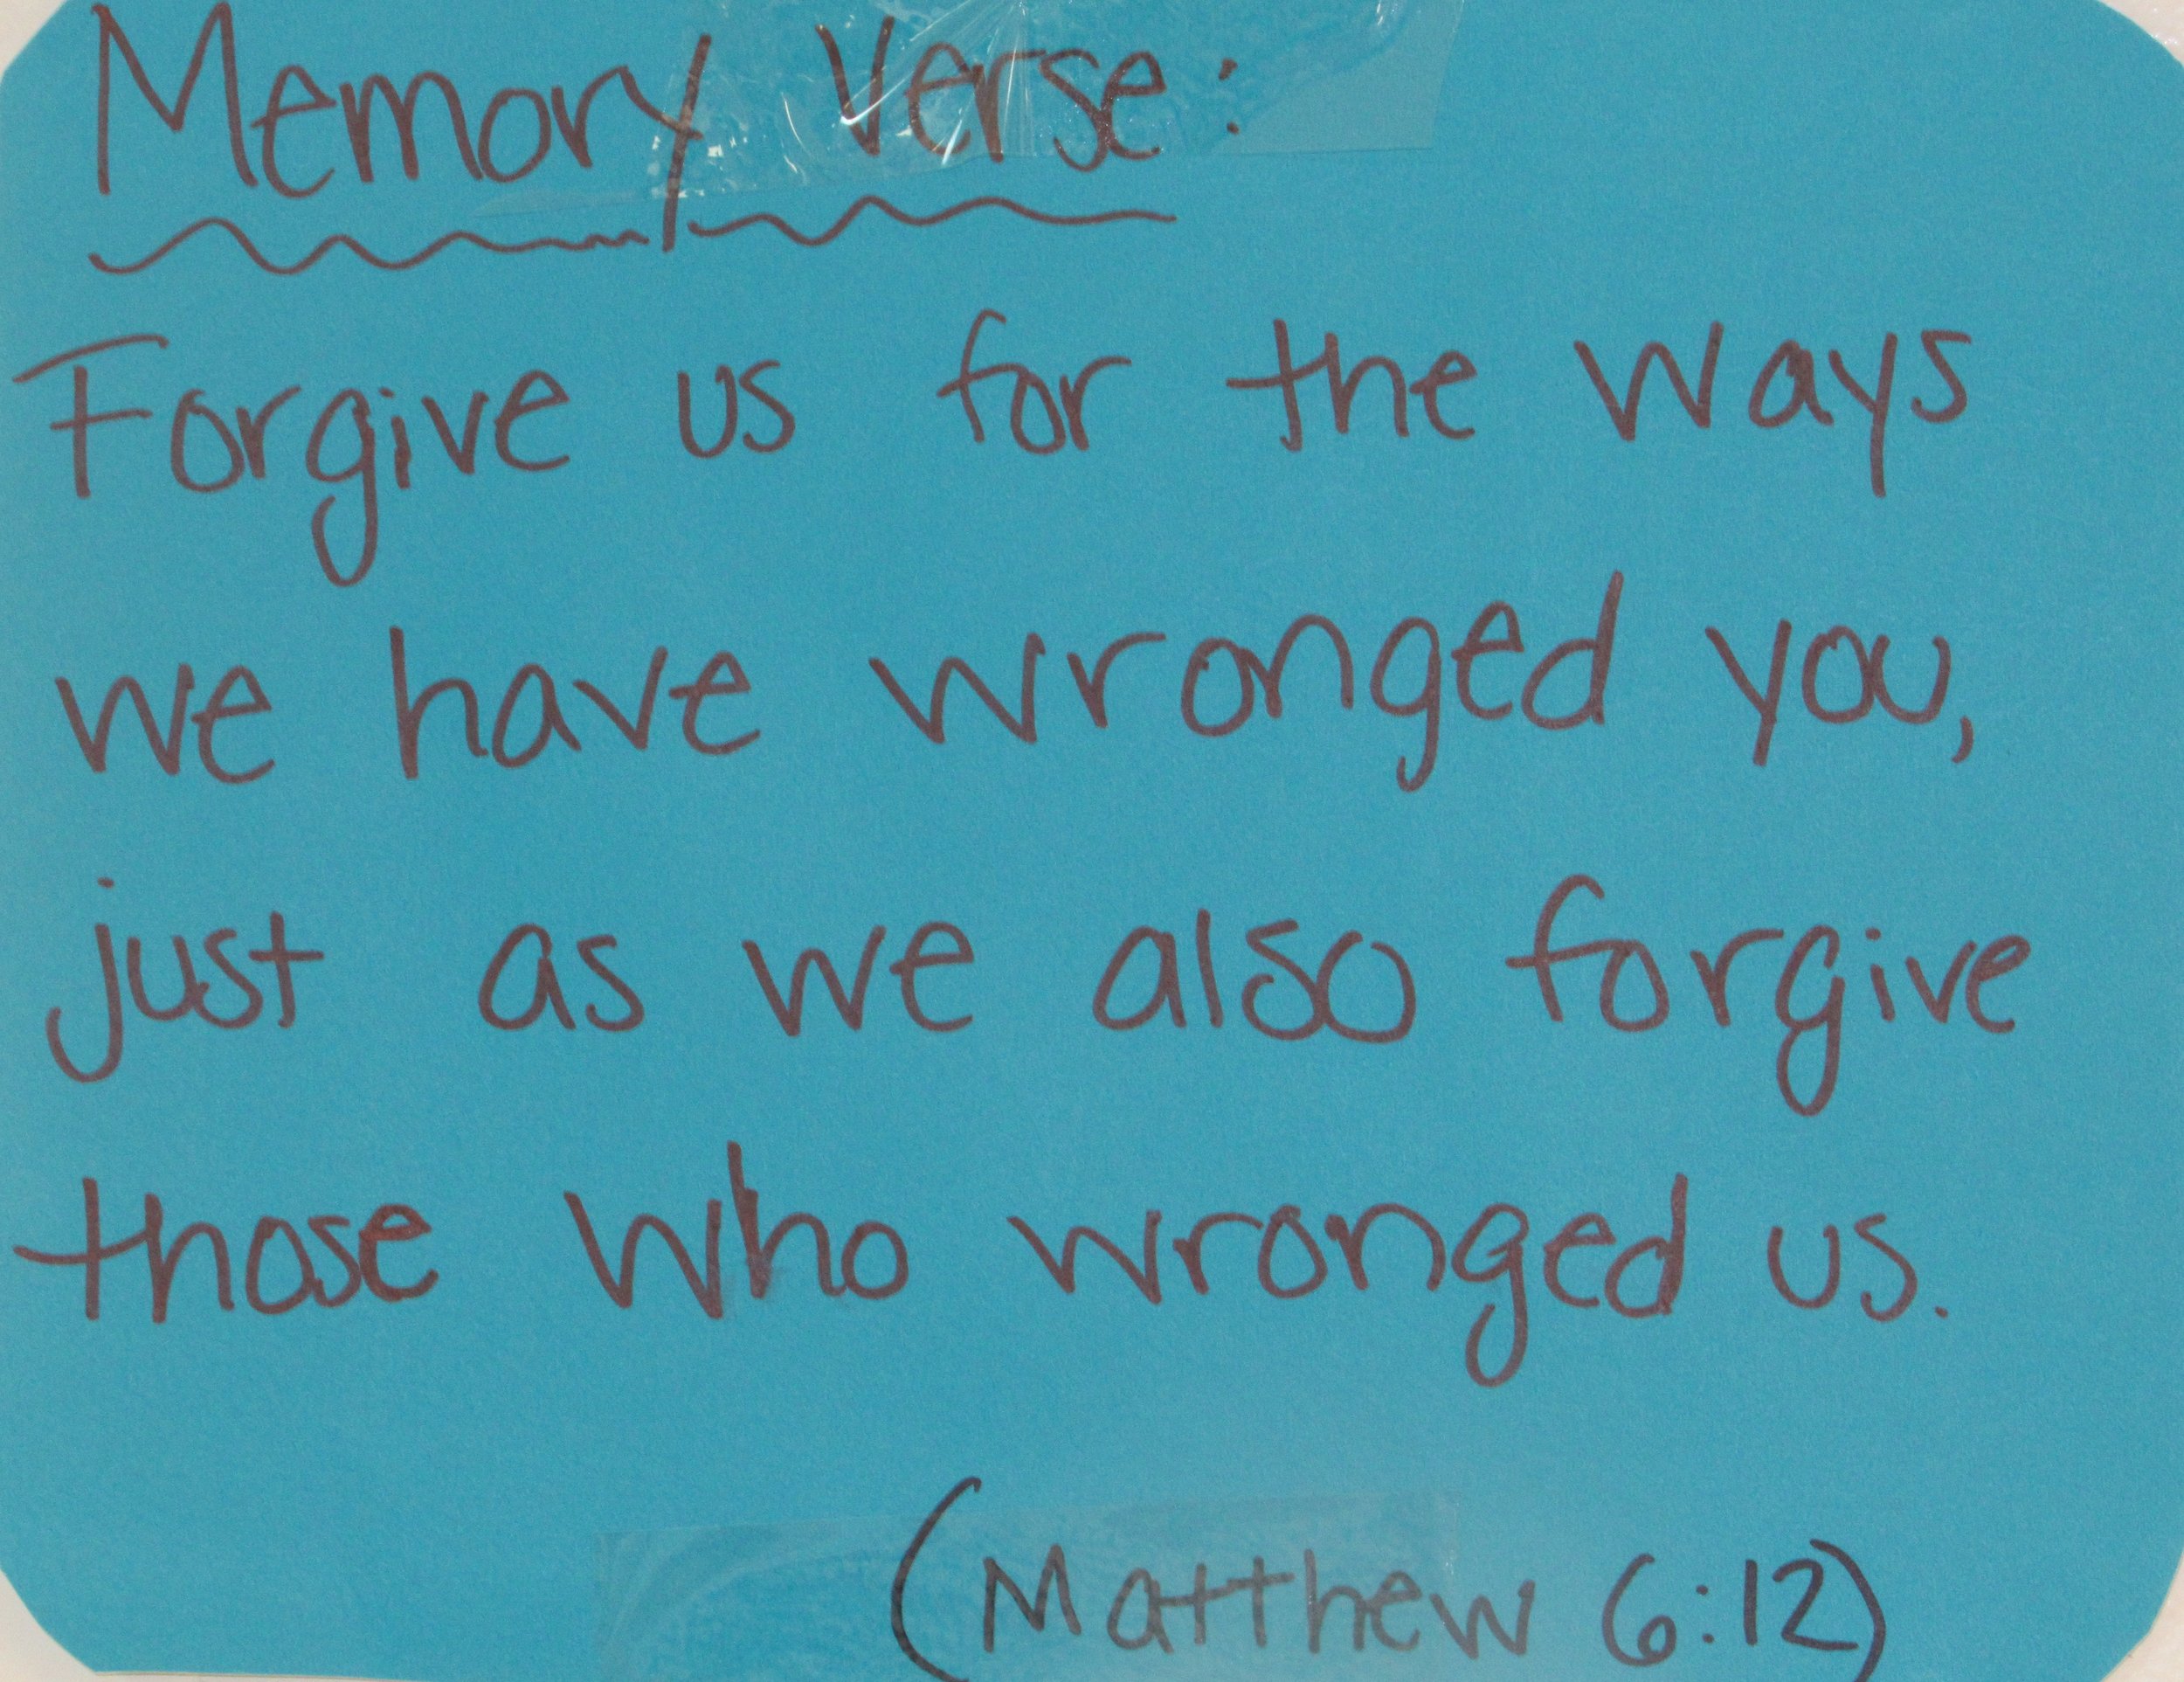 Memory Verse:
Forgive us for the ways
we have wronged you,
just as we also forgive
those who wronged us.
(Matthew 6:12)